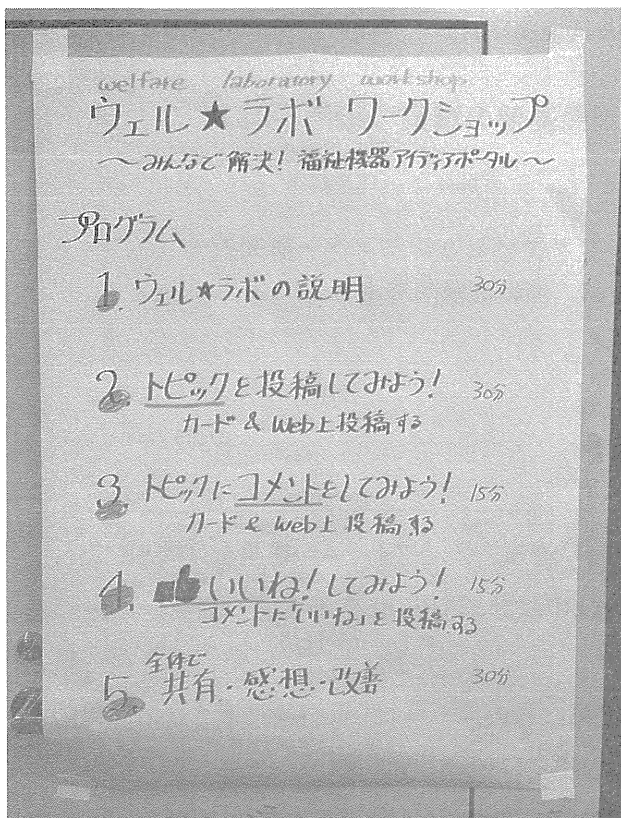 welfare laboratory workshop
ウェル★ラボ ワークショップ
〜みんなで解決! 福祉機器アイディアポータル〜
プログラム
1. ウェル★ラボの説明 30分
2. トピックを投稿してみよう! 30分
カード & Web上投稿する
3. トピックにコメントをしてみよう! 15分
カード & Web上投稿する
4. いいね!してみよう! 15分
コメントに「いいね」を投稿する
全体で
5. 共有・感想・改善 30分